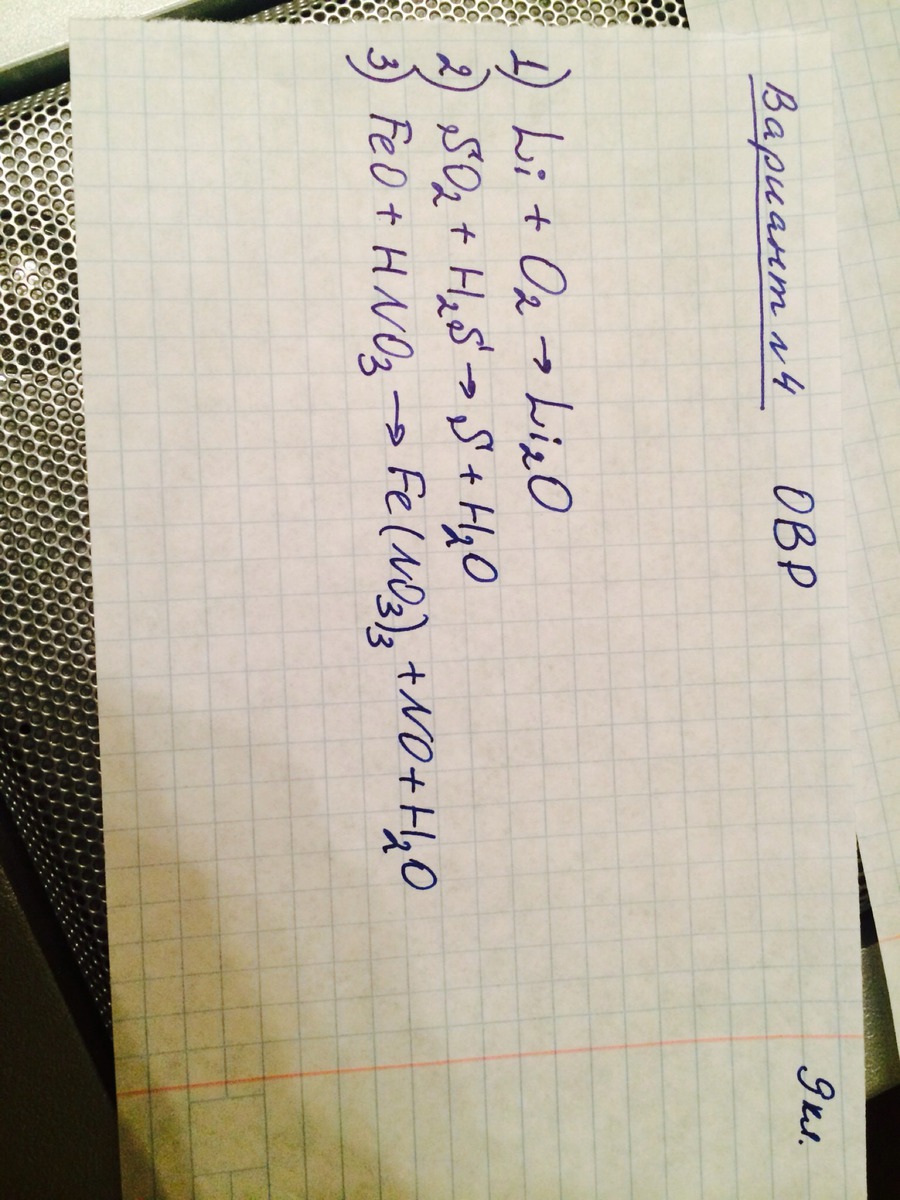 Вариант №4 ОВР 9 кл.
1) Li + O₂ → Li₂O
2) SO₂ + H₂S → S + H₂O
3) FeO + HNO₃ → Fe(NO₃)₃ + NO + H₂O